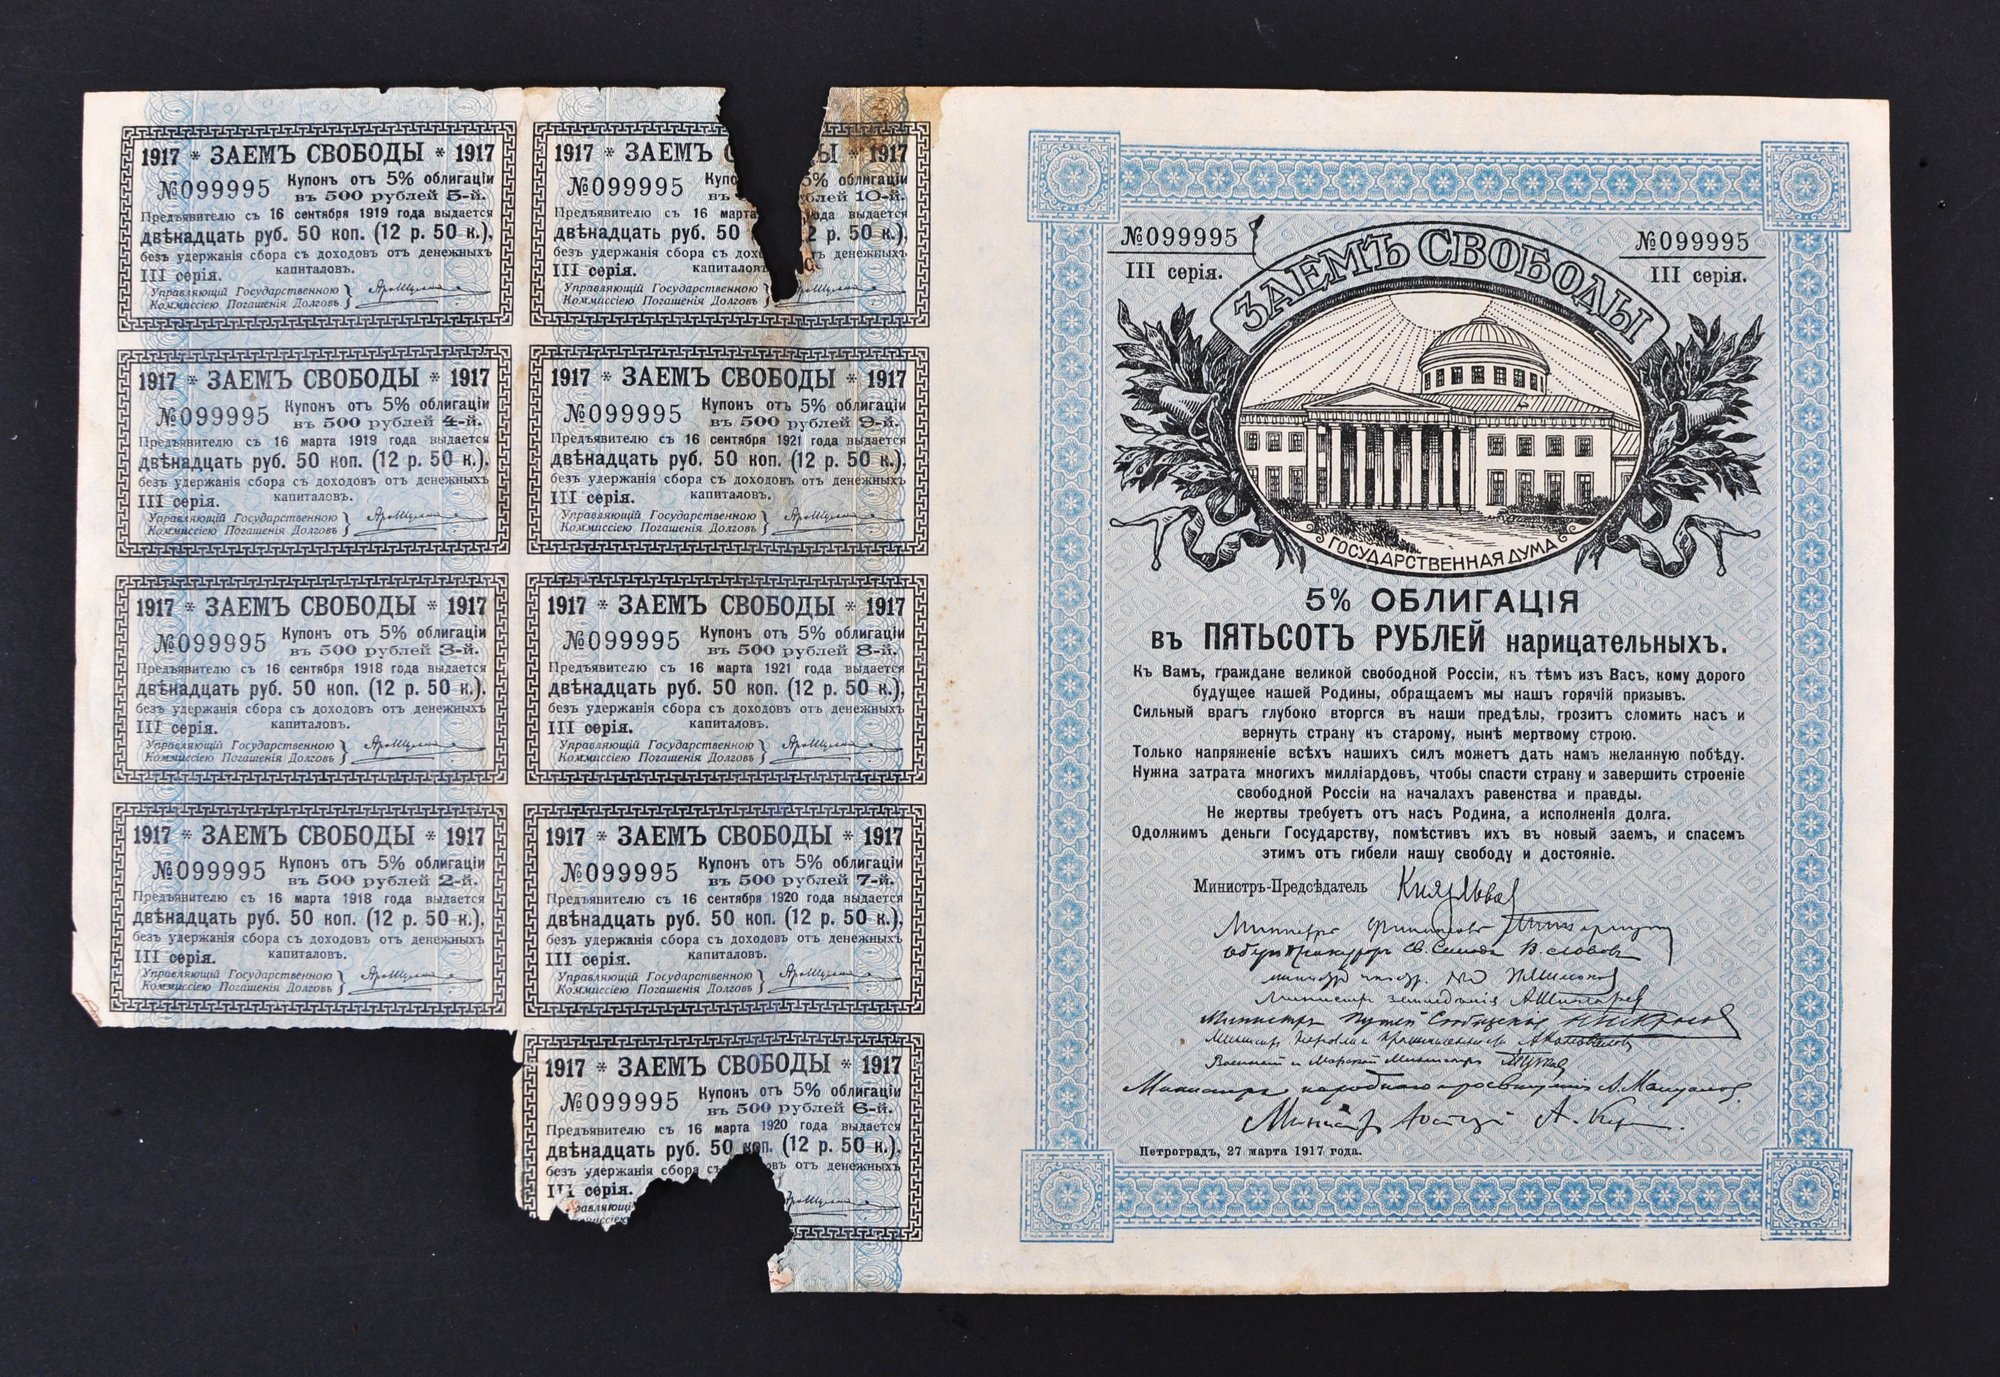 1917 * ЗАЕМЪ СВОБОДЫ * 1917
№099995 Купонъ отъ 5% облигаціи
въ 500 рублей 5-й.
Предъявителю съ 16 сентября 1919 года выдается
двѣнадцать руб. 50 коп. (12 р. 50 к.),
безъ удержанія сбора съ доходовъ отъ денежныхъ
III серія. капиталовъ.
Управляющій Государственною
Коммиссіею Погашенія Долговъ
1917 * ЗАЕМЪ СВОБОДЫ * 1917
№099995 Купонъ отъ 5% облигаціи
въ 500 рублей 4-й.
Предъявителю съ 16 марта 1919 года выдается
двѣнадцать руб. 50 коп. (12 р. 50 к.),
безъ удержанія сбора съ доходовъ отъ денежныхъ
III серія. капиталовъ.
Управляющій Государственною
Коммиссіею Погашенія Долговъ
1917 * ЗАЕМЪ СВОБОДЫ * 1917
№099995 Купонъ отъ 5% облигаціи
въ 500 рублей 3-й.
Предъявителю съ 16 сентября 1918 года выдается
двѣнадцать руб. 50 коп. (12 р. 50 к.),
безъ удержанія сбора съ доходовъ отъ денежныхъ
III серія. капиталовъ.
Управляющій Государственною
Коммиссіею Погашенія Долговъ
1917 * ЗАЕМЪ СВОБОДЫ * 1917
№099995 Купонъ отъ 5% облигаціи
въ 500 рублей 2-й.
Предъявителю съ 16 марта 1918 года выдается
двѣнадцать руб. 50 коп. (12 р. 50 к.),
безъ удержанія сбора съ доходовъ отъ денежныхъ
III серія. капиталовъ.
Управляющій Государственною
Коммиссіею Погашенія Долговъ
1917 * ЗАЕМЪ * 1917
№099995 5% облигаціи
въ 10-й.
Предъявителю съ 16 марта года выдается
двѣнадцать руб. 50 р. 50 к.),
безъ удержанія сбора съ доходовъ денежныхъ
III серія. капиталовъ
Управляющій Государственною
Коммиссіею Погашенія Долговъ
1917 * ЗАЕМЪ СВОБОДЫ * 1917
№099995 Купонъ отъ 5% облигаціи
въ 500 рублей 9-й.
Предъявителю съ 16 сентября 1921 года выдается
двѣнадцать руб. 50 коп. (12 р. 50 к.),
безъ удержанія сбора съ доходовъ отъ денежныхъ
III серія. капиталовъ.
Управляющій Государственною
Коммиссіею Погашенія Долговъ
1917 * ЗАЕМЪ СВОБОДЫ * 1917
№099995 Купонъ отъ 5% облигаціи
въ 500 рублей 8-й.
Предъявителю съ 16 марта 1921 года выдается
двѣнадцать руб. 50 коп. (12 р. 50 к.),
безъ удержанія сбора съ доходовъ отъ денежныхъ
III серія. капиталовъ.
Управляющій Государственною
Коммиссіею Погашенія Долговъ
1917 * ЗАЕМЪ СВОБОДЫ * 1917
№099995 Купонъ отъ 5% облигаціи
въ 500 рублей 7-й.
Предъявителю съ 16 сентября 1920 года выдается
двѣнадцать руб. 50 коп. (12 р. 50 к.),
безъ удержанія сбора съ доходовъ отъ денежныхъ
III серія. капиталовъ.
Управляющій Государственною
Коммиссіею Погашенія Долговъ
1917 * ЗАЕМЪ СВОБОДЫ * 1917
№099995 Купонъ отъ 5% облигаціи
въ 500 рублей 6-й.
Предъявителю съ 16 марта 1920 года выдается
двѣнадцать руб. 50 коп. (12 р. 50 к.),
безъ удержанія сбора съ отъ денежныхъ
III серія.
№099995 №099995
III серія. III серія.
ЗАЕМЪ СВОБОДЫ
ГОСУДАРСТВЕННАЯ ДУМА
5% ОБЛИГАЦІЯ
въ ПЯТЬСОТЪ РУБЛЕЙ нарицательныхъ.
Къ Вамъ, граждане великой свободной Россіи, къ тѣмъ изъ Васъ, кому дорого
будущее нашей Родины, обращаемъ мы нашъ горячій призывъ.
Сильный врагъ глубоко вторгся въ наши предѣлы, грозитъ сломить насъ и
вернуть страну къ старому, нынѣ мертвому строю.
Только напряженіе всѣхъ нашихъ силъ можетъ дать намъ желанную побѣду.
Нужна затрата многихъ милліардовъ, чтобы спасти страну и завершить строеніе
свободной Россіи на началахъ равенства и правды.
Не жертвы требуетъ отъ насъ Родина, а исполненія долга.
Одолжимъ деньги Государству, помѣстивъ ихъ въ новый заемъ, и спасемъ
этимъ отъ гибели нашу свободу и достояніе.
Министръ-Предсѣдатель Князь Львов
Министръ Финансовъ
Оберъ Прокуроръ Св. Синода В. Львовъ
Министръ земледѣлія А. Шингаревъ
Министръ Путей Сообщенія Н. Некрасовъ
А. Коноваловъ
Военный и Морской Министръ
Министръ народнаго просвѣщенія А. Мануйловъ.
Министр Юстиціи А. Керенскій
Петроградъ, 27 марта 1917 года.